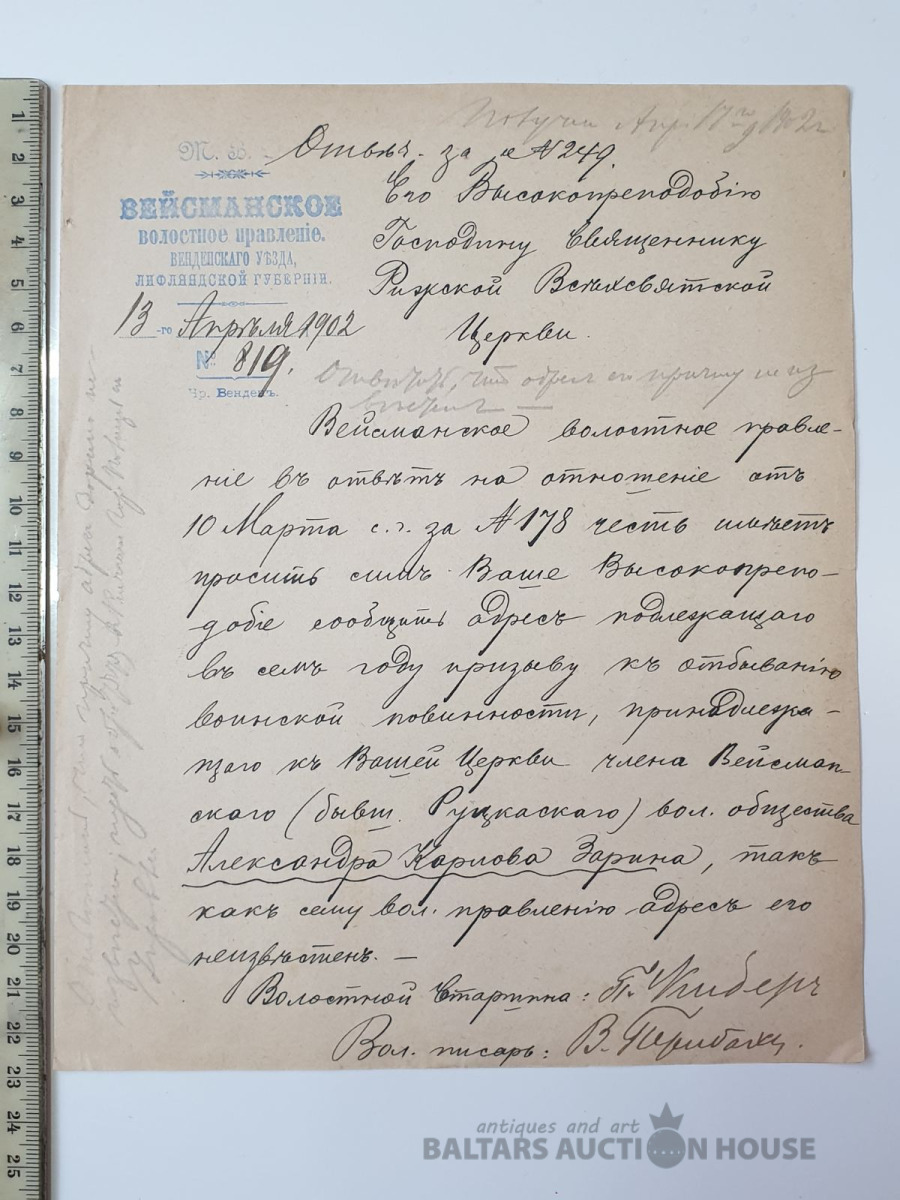 Апр. 17
Отвѣч. за № 249.
М. В.
ВЕЙСМАНСКОЕ
волостное правленіе.
ВЕНДЕНСКАГО УѢЗДА,
ЛИФЛЯНДСКОЙ ГУБЕРНІИ.
13-го Апрѣля 1902
№ 819.
Чр. Венденъ.
Его Высокопреподобію
Господину Священнику
Рижской Всѣхсвятской
Церкви.
Отвѣтить, что адрес его причту не из
вѣстен —
Вейсманское волостное правле-
ніе въ отвѣтъ на отношеніе отъ
10 Марта с. г. за № 178 честь имѣетъ
просить симъ Ваше Высокопрепо-
добіе сообщить адресъ подлежащаго
въ семъ году призыву къ отбыванію
воинской повинности, принадлежа-
щаго къ Вашей Церкви члена Вейсман-
скаго (бывш. Руцкаскаго) вол. общества
Александра Карлова Зарина, такъ
какъ сему вол. правленію адресъ его
неизвѣстенъ. —
Волостной Старшина:
Вол. писарь: В.
1
2
3
4
5
6
7
8
9
10
11
12
13
14
15
16
17
18
19
20
21
22
23
24
25
antiques and art
BALTARS AUCTION HOUSE